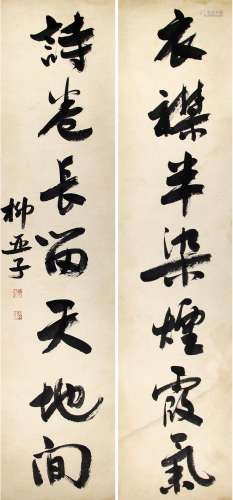 衣襟半染煙霞氣
詩卷長留天地間
柳亚子